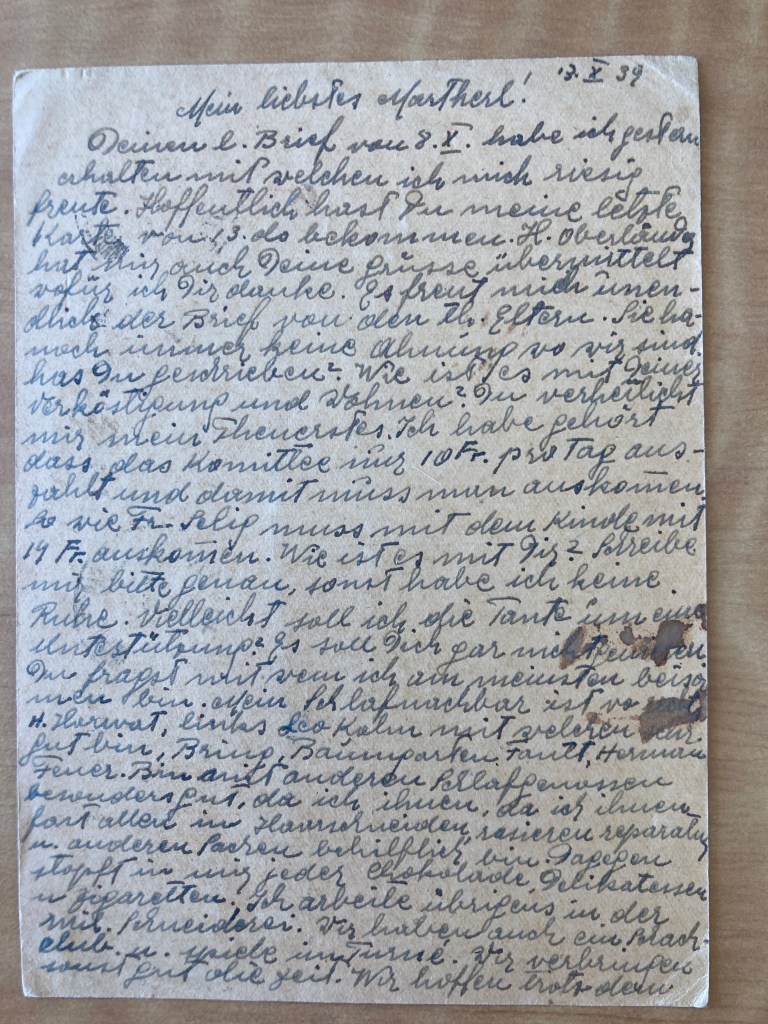 13. X 39
Mein liebstes Martherl!
Deinen l. Brief von 8. X. habe ich gestern
erhalten mit welchen ich mich riesig
freute. Hoffentlich hast Du meine letzte
Karte von 13. do bekommen. H. Oberlände
hat mir auch Deine grüsse übermittelt
wofür ich Dir danke. Es freut mich ünen-
dlich der Brief von den th. Eltern. Sie ha-
noch immer keine Ahnung wo wir sind.
has Du geschrieben? Wie ist es mit Deiner
Verköstigung und Wohnen? Du verheilichst
mir mein Theuerstes. Ich habe gehört
dass das Komittee nur 10 Fr. pro Tag aus-
zahlt und damit muss man auskomen.
So wie Fr. Selig muss mit dem Kinde mit
14 Fr. auskomen. Wie ist es mit Dir? Schreibe
mir bitte genau, sonst habe ich keine
Ruhe. Vielleicht soll ich die Tante um eine
Unterstützung? Es soll Dich gar nicht
Du fragst mit wem ich am meinsten beisa
men bin. Mein Schlafnachbar ist vo
H. Horwat, links Leo Kohn mit welchen sehr
gut bin, Bring, Baumgarten, Herman
Feuer. Bin mit anderen Schlafgenossen
besonders gut, da ich ihnen, da ich ihnen
fast allen in Haarschneiden, rasieren reparatur
u. anderen Sachen behilflich bin Dagegen
stopft in mir jeder Chokolade, Delikatessen
u Zigaretten. Ich arbeite übrigens in der
mil. Schneiderei. Wir haben auch ein Schach-
club u. spiele im Turne. Wir verbringen
sonst gut die Zeit. Wir hoffen trotz dem